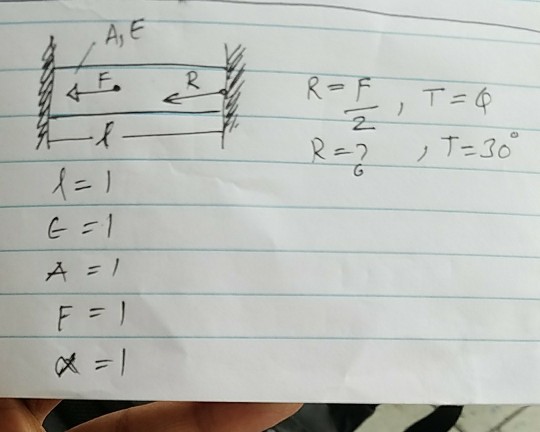 A, E
F R
l
R = F/2 , T = φ
R = ? , T = 30°
l = 1
E = 1
A = 1
F = 1
α = 1